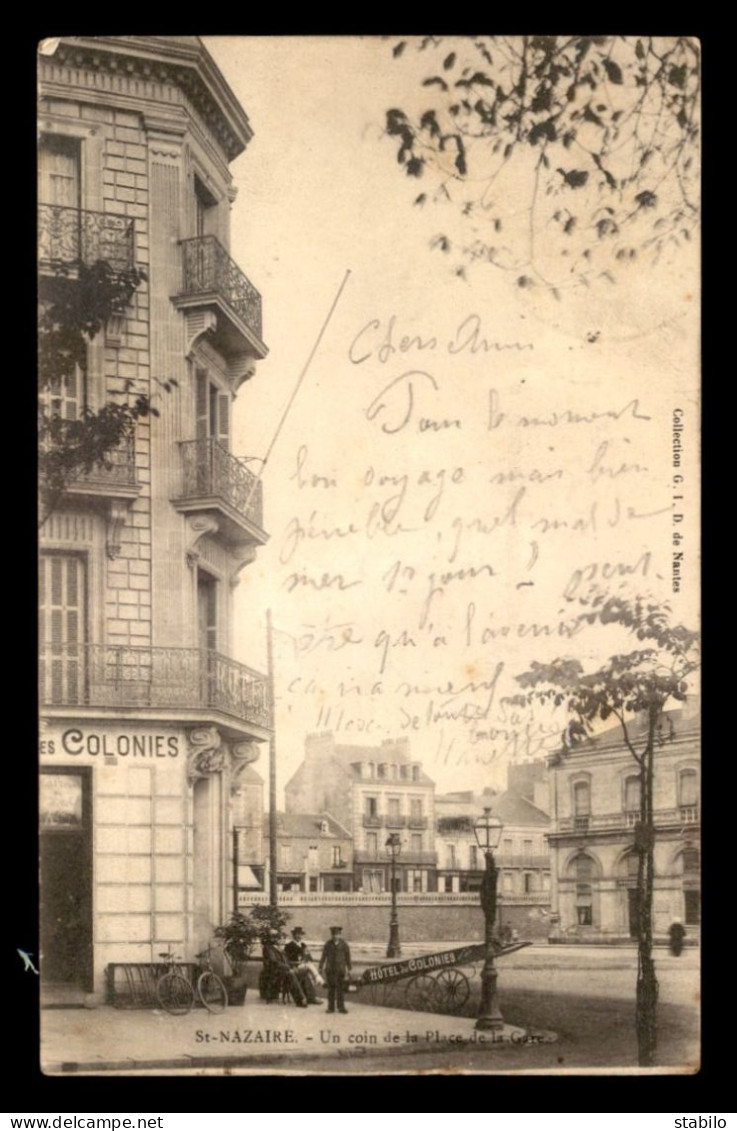 Chers Amis
Pour le moment
bon voyage mais bien
pénible, quel mal de
mer 1er jour! peut
être qu'à l'avenir
ça ira mieux
de toute
Collection G. I. D. de Nantes
ES COLONIES
HÔTEL DES COLONIES
St-NAZAIRE. - Un coin de la Place de la Gare.
Stabilo